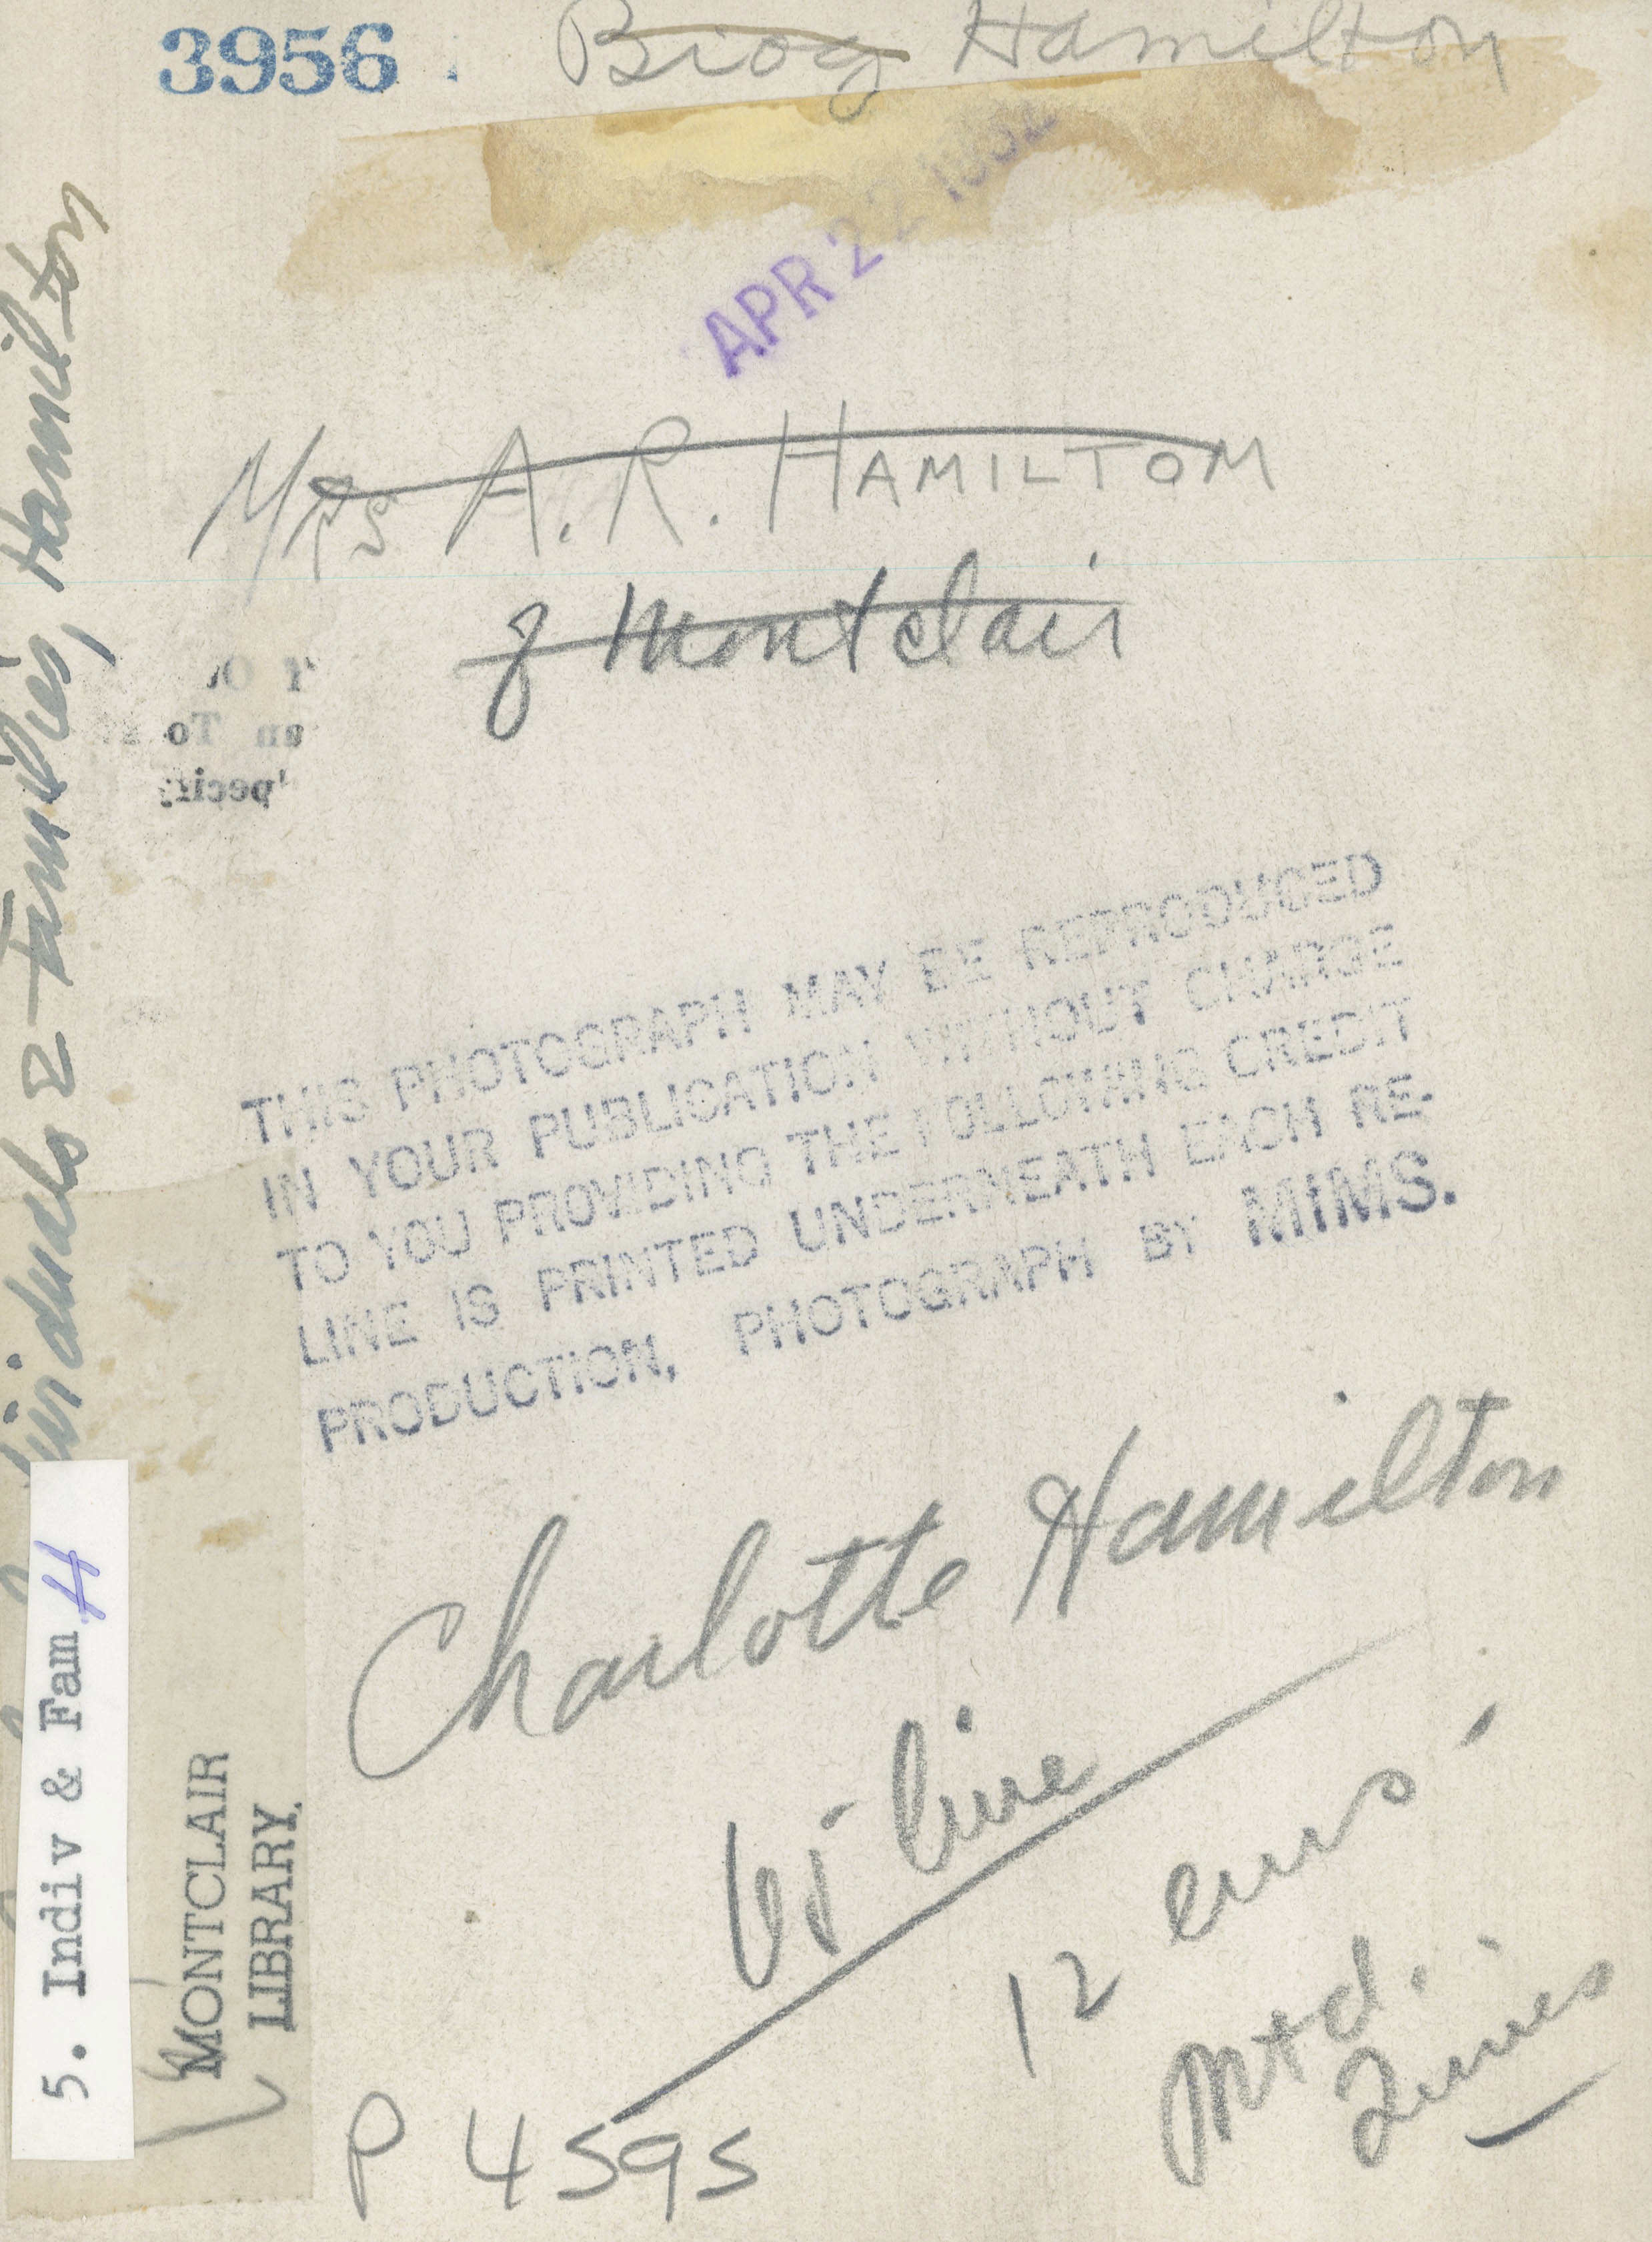 3956
Biog Hamilton
APR 22
Mrs A. R. HAMILTON
of Montclair
THIS PHOTOGRAPH MAY BE REPRODUCED
IN YOUR PUBLICATION WITHOUT CHARGE
TO YOU PROVIDING THE FOLLOWING CREDIT
LINE IS PRINTED UNDERNEATH EACH RE-
PRODUCTION, PHOTOGRAPH BY MIMS.
Charlotte Hamilton
line
12 ems
Mtd.
Times
P 4595
Families, Hamilton
5. Indiv & Fam H
MONTCLAIR
LIBRARY.